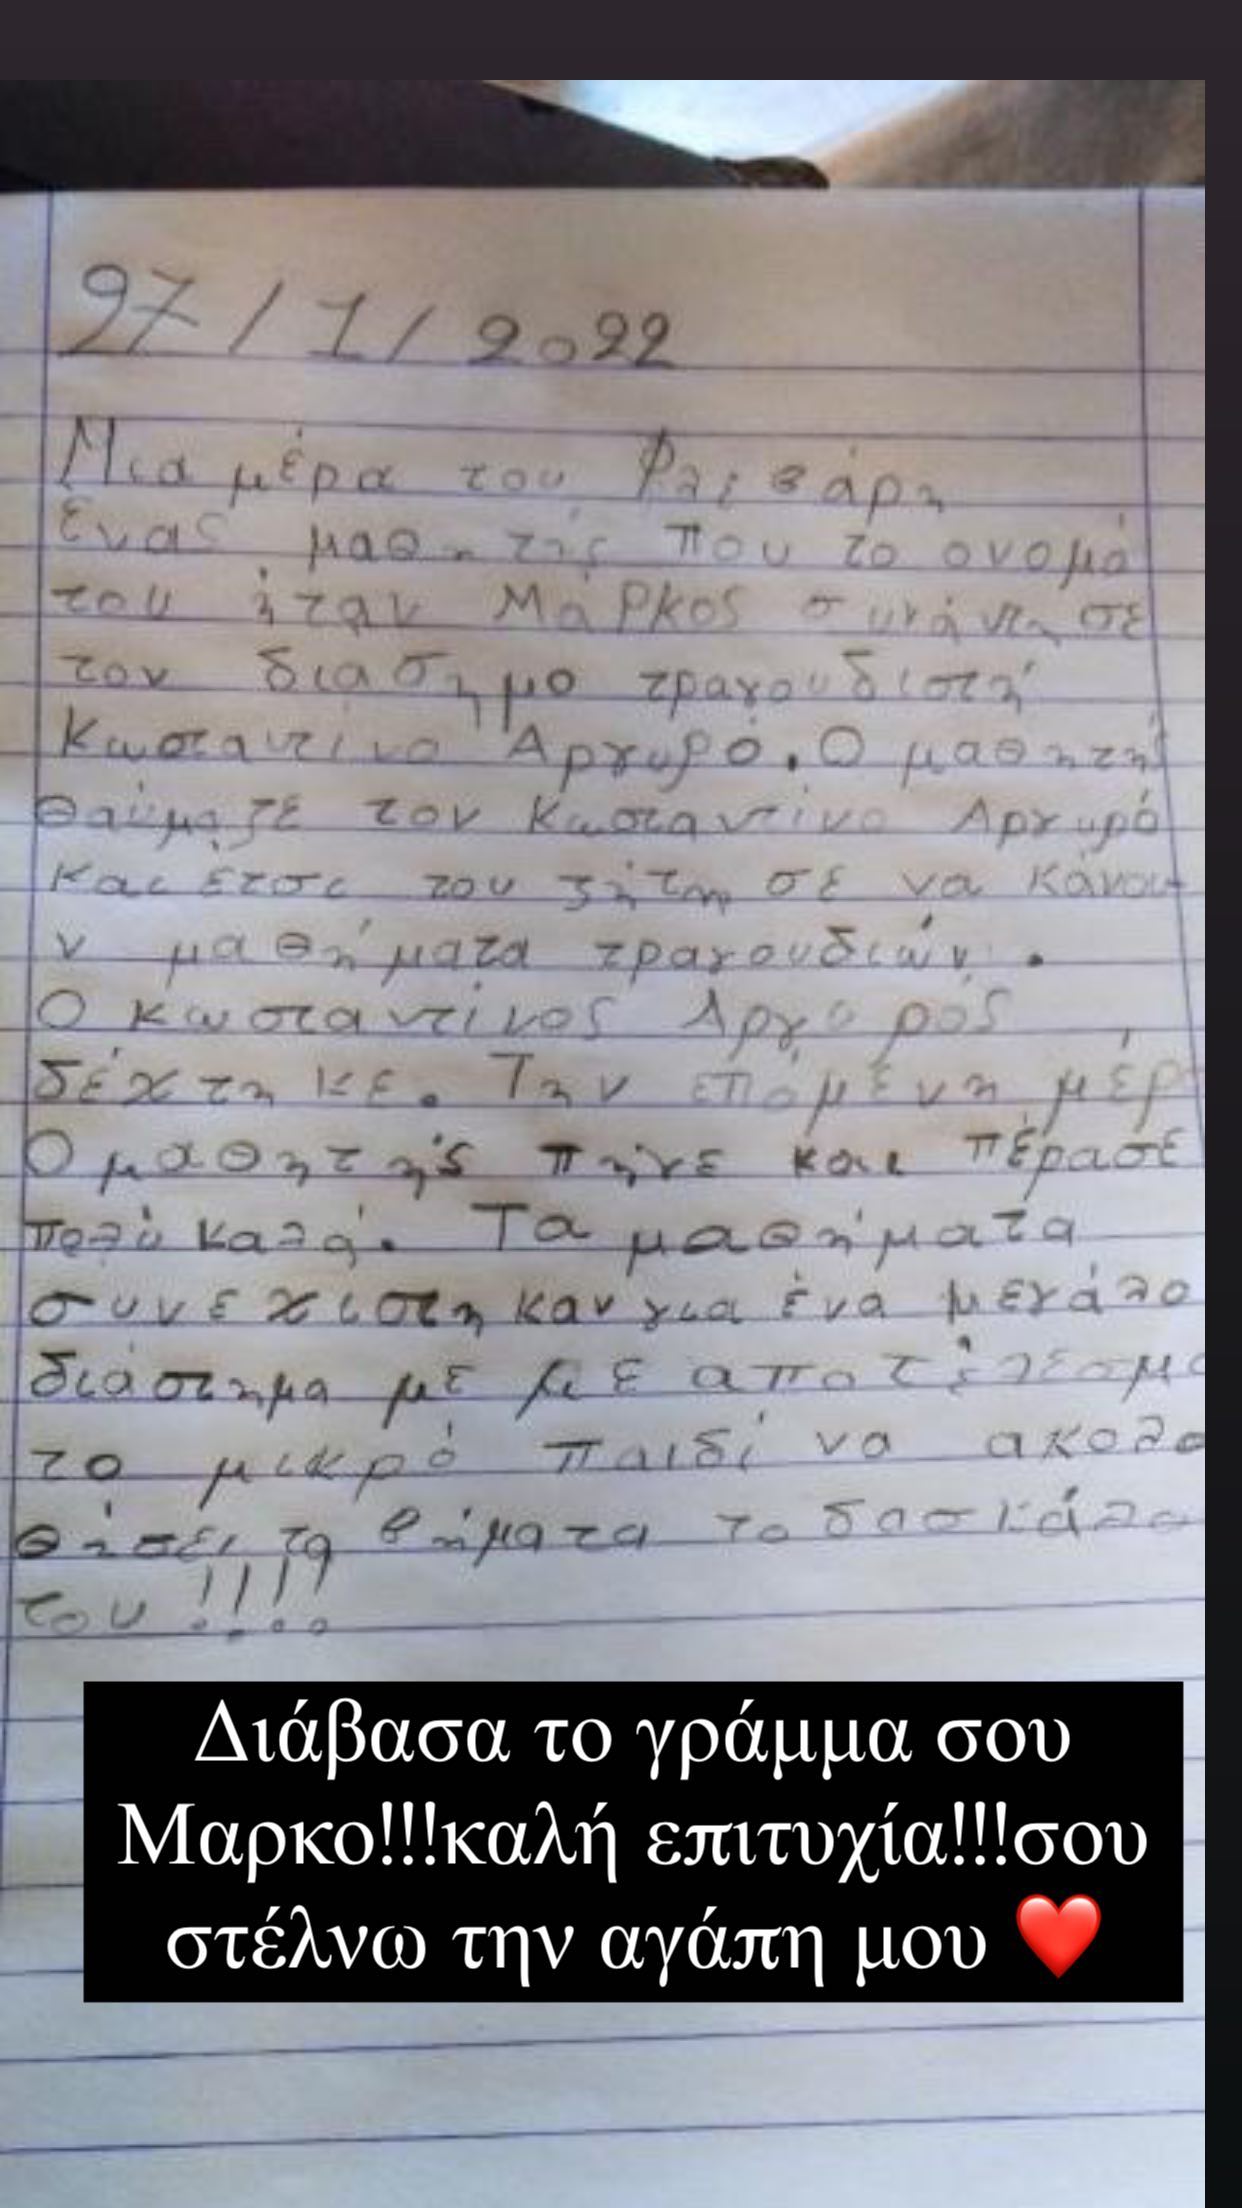 27/1/2022
Μια μέρα του Φλεβάρη
ένας μαθητής που το ονομά
του ήταν Μάρκος συνάντησε
τον διάσημο τραγουδιστή
Κωσταντίνο Αργυρό. Ο μαθητής
θαύμαζε τον Κωσταντίνο Αργυρό
και έτσι του ζήτησε να κάνου-
ν μαθήματα τραγουδιών.
Ο Κωσταντίνος Αργυρός
δέχτηκε. Την επόμενη μέρ
Ο μαθητής πήγε και πέρασε
πολύ καλά. Τα μαθήματα
συνεχιστηκαν για ένα μεγάλο
διάστημα με με αποτέλεσμα
το μικρό παιδί να ακολο
θήσει τα βήματα το δασκάλο
του !!!!
Διάβασα το γράμμα σου
Μαρκο!!!καλή επιτυχία!!!σου
στέλνω την αγάπη μου ❤️